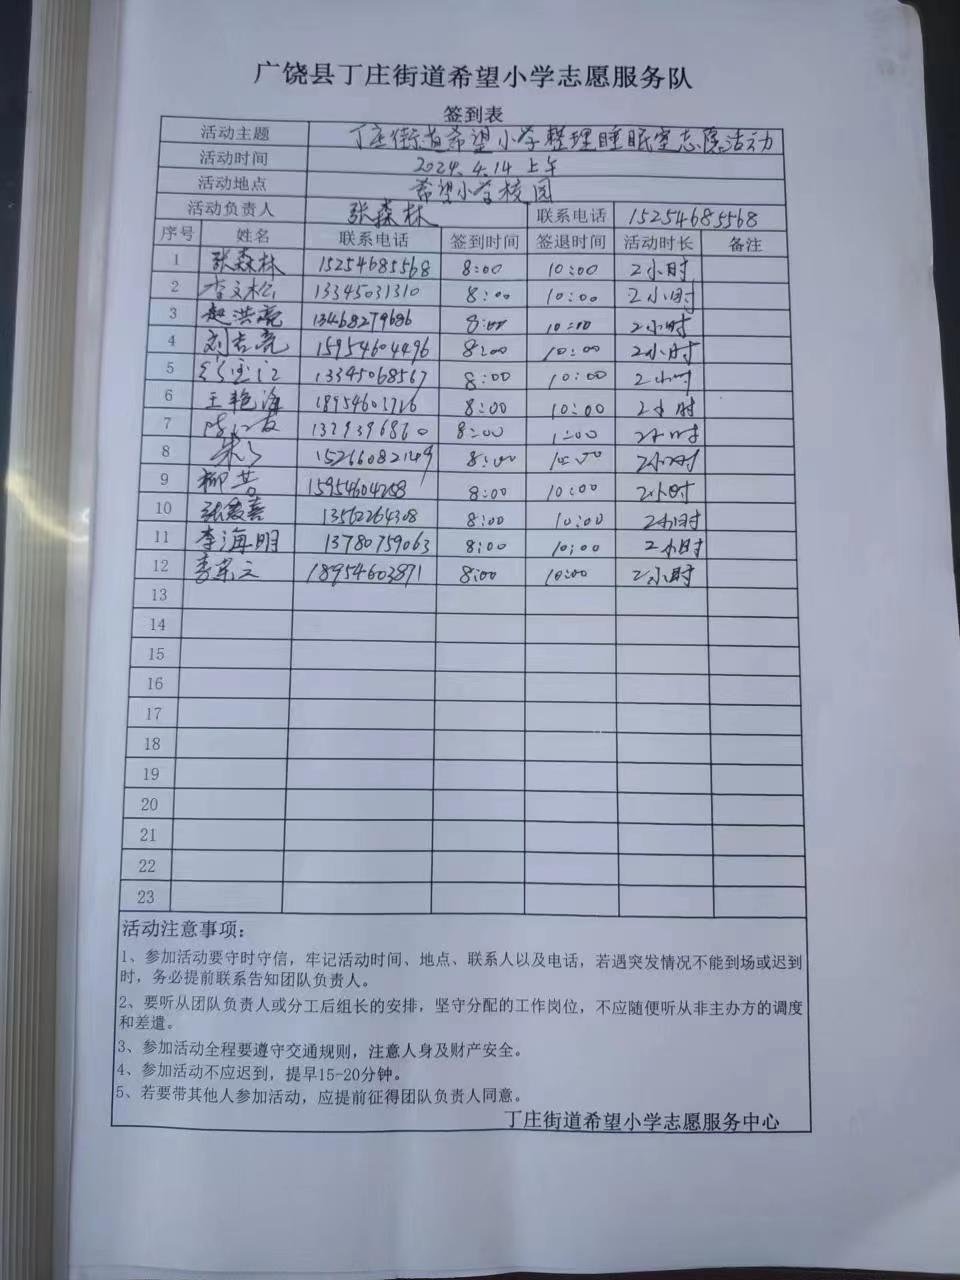 广饶县丁庄街道希望小学志愿服务队
签到表
活动主题 丁庄街道希望小学整理睡眠室志愿活动
活动时间 2024.4.14上午
活动地点 希望小学校园
活动负责人 张森林 联系电话 15254685568
序号 姓名 联系电话 签到时间 签退时间 活动时长 备注
1 张森林 15254685568 8:00 10:00 2小时
2 李文松 13345031310 8:00 10:00 2小时
3 赵洪亮 13468279686 8:00 10:00 2小时
4 刘吉亮 15954604496 8:00 10:00 2小时
5 13345068567 8:00 10:00 2小时
6 王艳海 18954603726 8:00 10:00 2小时
7 8:00 1:00 2小时
8 15266082149 8:00 10:00 2小时
9 柳芸 15954604258 8:00 10:00 2小时
10 13562264308 8:00 10:00 2小时
11 李海明 13780759063 8:00 10:00 2小时
12 18954603871 8:00 10:00 2小时
13
14
15
16
17
18
19
20
21
22
23
活动注意事项：
1、参加活动要守时守信，牢记活动时间、地点、联系人以及电话，若遇突发情况不能到场或迟到
时，务必提前联系告知团队负责人。
2、要听从团队负责人或分工后组长的安排，坚守分配的工作岗位，不应随便听从非主办方的调度
和差遣。
3、参加活动全程要遵守交通规则，注意人身及财产安全。
4、参加活动不应迟到，提早15-20分钟。
5、若要带其他人参加活动，应提前征得团队负责人同意。
丁庄街道希望小学志愿服务中心